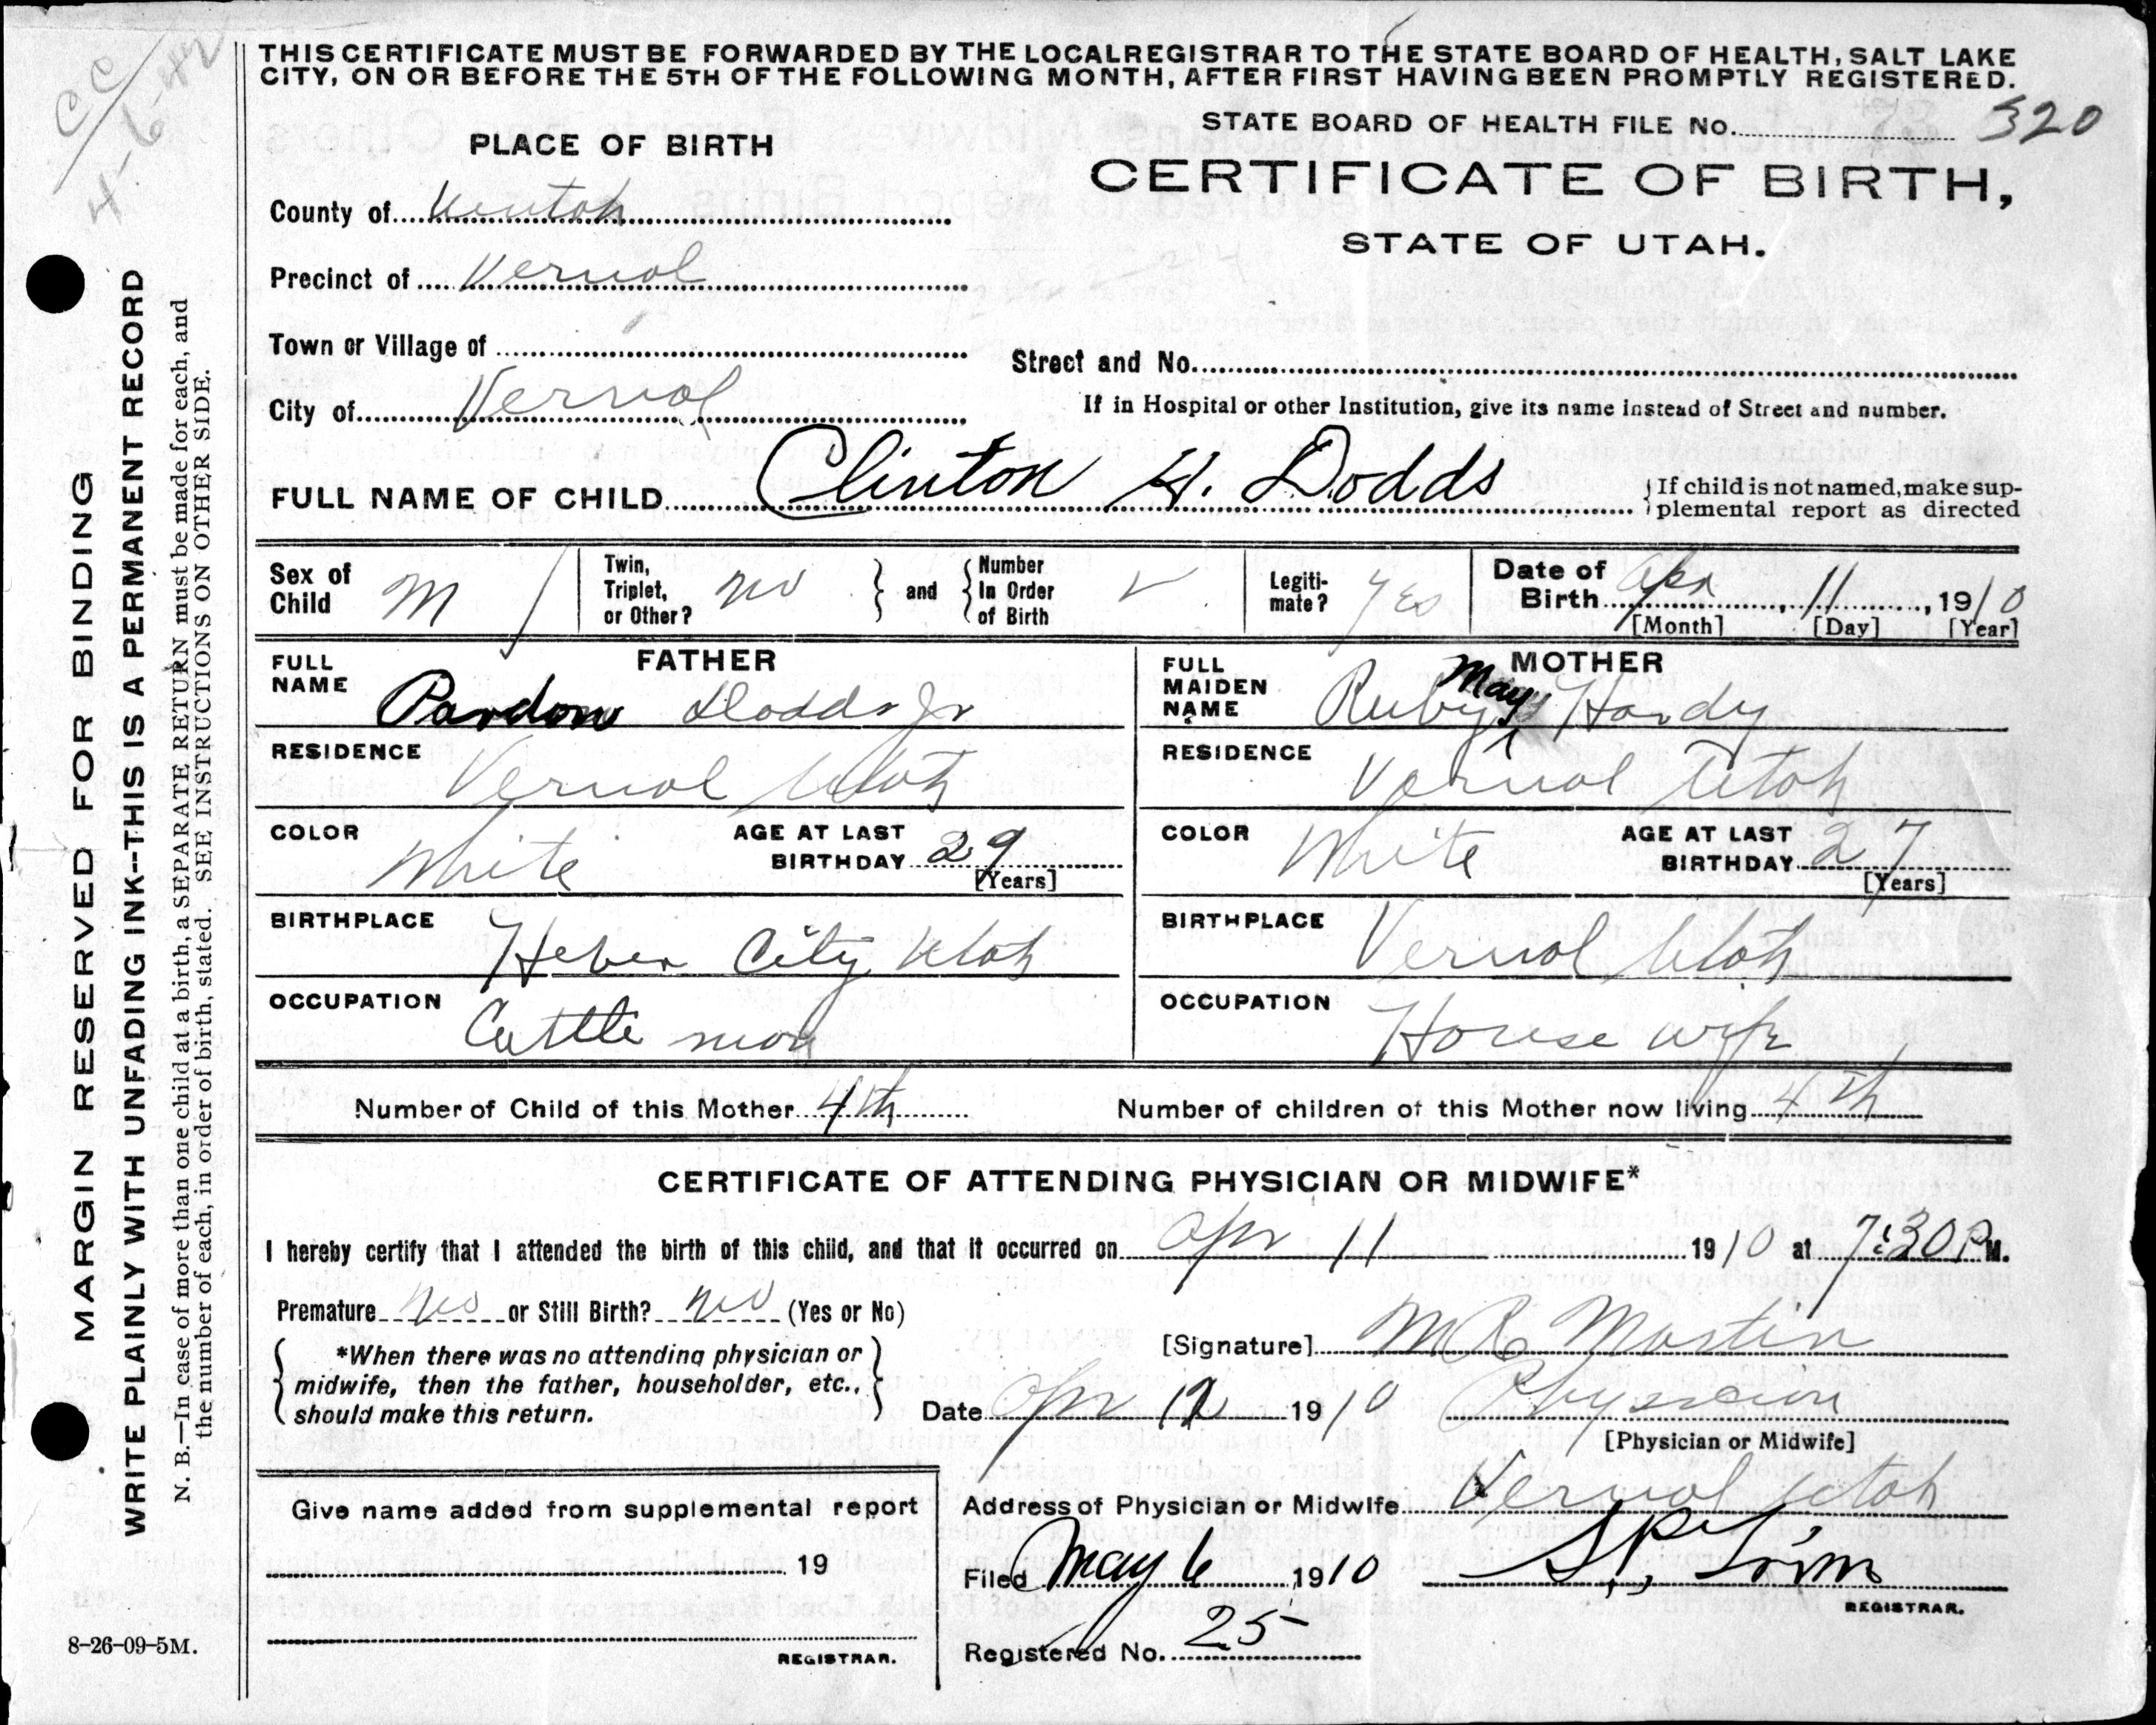 CC
4-6-42
THIS CERTIFICATE MUST BE FORWARDED BY THE LOCAL REGISTRAR TO THE STATE BOARD OF HEALTH, SALT LAKE
CITY, ON OR BEFORE THE 5TH OF THE FOLLOWING MONTH, AFTER FIRST HAVING BEEN PROMPTLY REGISTERED.
STATE BOARD OF HEALTH FILE No. 320
PLACE OF BIRTH
CERTIFICATE OF BIRTH,
STATE OF UTAH.
County of Uintah
Precinct of Vernal
Town or Village of
Street and No.
City of Vernal
If in Hospital or other Institution, give its name instead of Street and number.
FULL NAME OF CHILD Clinton H. Dodds
{If child is not named, make sup-
plemental report as directed
Sex of Child M
Twin, Triplet, or Other? no } and { Number In Order of Birth
Legiti-mate? Yes
Date of Birth Apr, 11, 1910
[Month] [Day] [Year]
FATHER
FULL NAME Pardon Dodds Jr
RESIDENCE Vernal Utah
COLOR White AGE AT LAST BIRTHDAY 29
[Years]
BIRTHPLACE Heber City Utah
OCCUPATION Cattle man
MOTHER
FULL MAIDEN NAME Ruby May Hardy
RESIDENCE Vernal Utah
COLOR White AGE AT LAST BIRTHDAY 27
[Years]
BIRTHPLACE Vernal Utah
OCCUPATION House wife
Number of Child of this Mother 4th Number of children of this Mother now living 4th
CERTIFICATE OF ATTENDING PHYSICIAN OR MIDWIFE*
I hereby certify that I attended the birth of this child, and that it occurred on Apr 11 1910 at 7:30 P M.
Premature no or Still Birth? no (Yes or No)
{ *When there was no attending physician or
midwife, then the father, householder, etc.,
should make this return. }
[Signature] Martin
Date Apr 12 1910 Physician
[Physician or Midwife]
Address of Physician or Midwife Vernal Utah
Give name added from supplemental report
19
REGISTRAR.
Filed May 6 1910
REGISTRAR.
Registered No. 25
MARGIN RESERVED FOR BINDING
WRITE PLAINLY WITH UNFADING INK--THIS IS A PERMANENT RECORD
N. B.—In case of more than one child at a birth, a SEPARATE RETURN must be made for each, and
the number of each, in order of birth, stated. SEE INSTRUCTIONS ON OTHER SIDE.
8-26-09-5M.